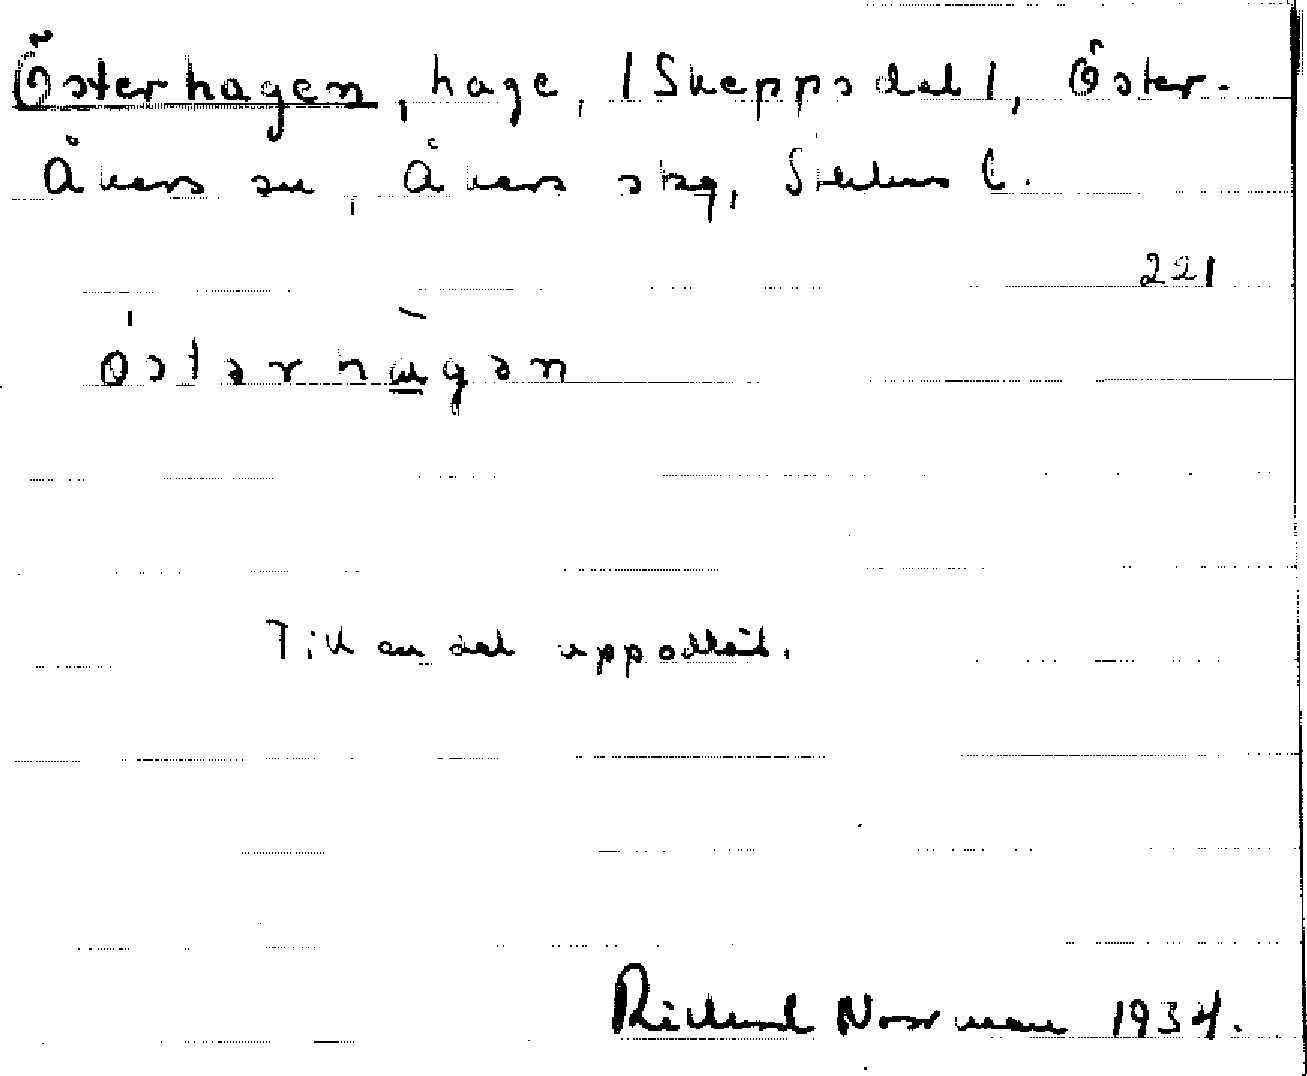 Österhagen, hage, (Skeppsdal), Öster-
Åkers sn, Åkers skg, Sthlms l.
221
östərhàgən
Till en del uppodlad.
Richard Norrman 1934.